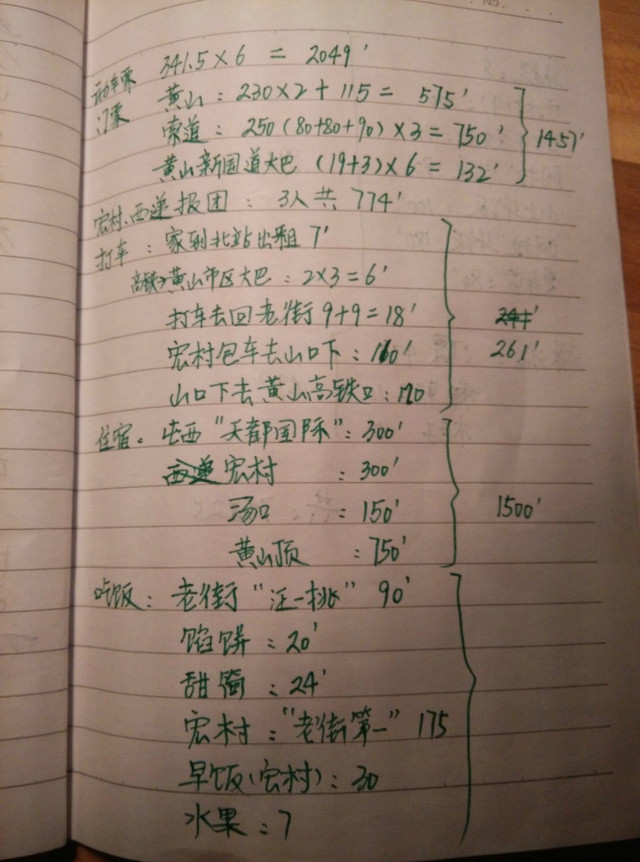 动车票 341.5×6 = 2049'
门票 黄山：230×2+115= 575'
索道：250(80+80+90)×3=750' 1457'
黄山新国道大巴 (19+3)×6 = 132'
宏村、西递报团：3人共 774'
打车：家到北站出租 7'
高铁→黄山市区大巴：2×3=6'
打车去回老街 9+9=18' 241'
宏村包车去山口下：110' 261'
山口下去黄山高铁口：120
住宿。屯西"天都国际"：300'
西递 宏村：300'
汤口：150' 1500'
黄山顶：750'
吃饭：老街"汪一挑" 90'
馅饼：20'
甜筒：24'
宏村："老街第一" 175
早饭(宏村)：30
水果：7